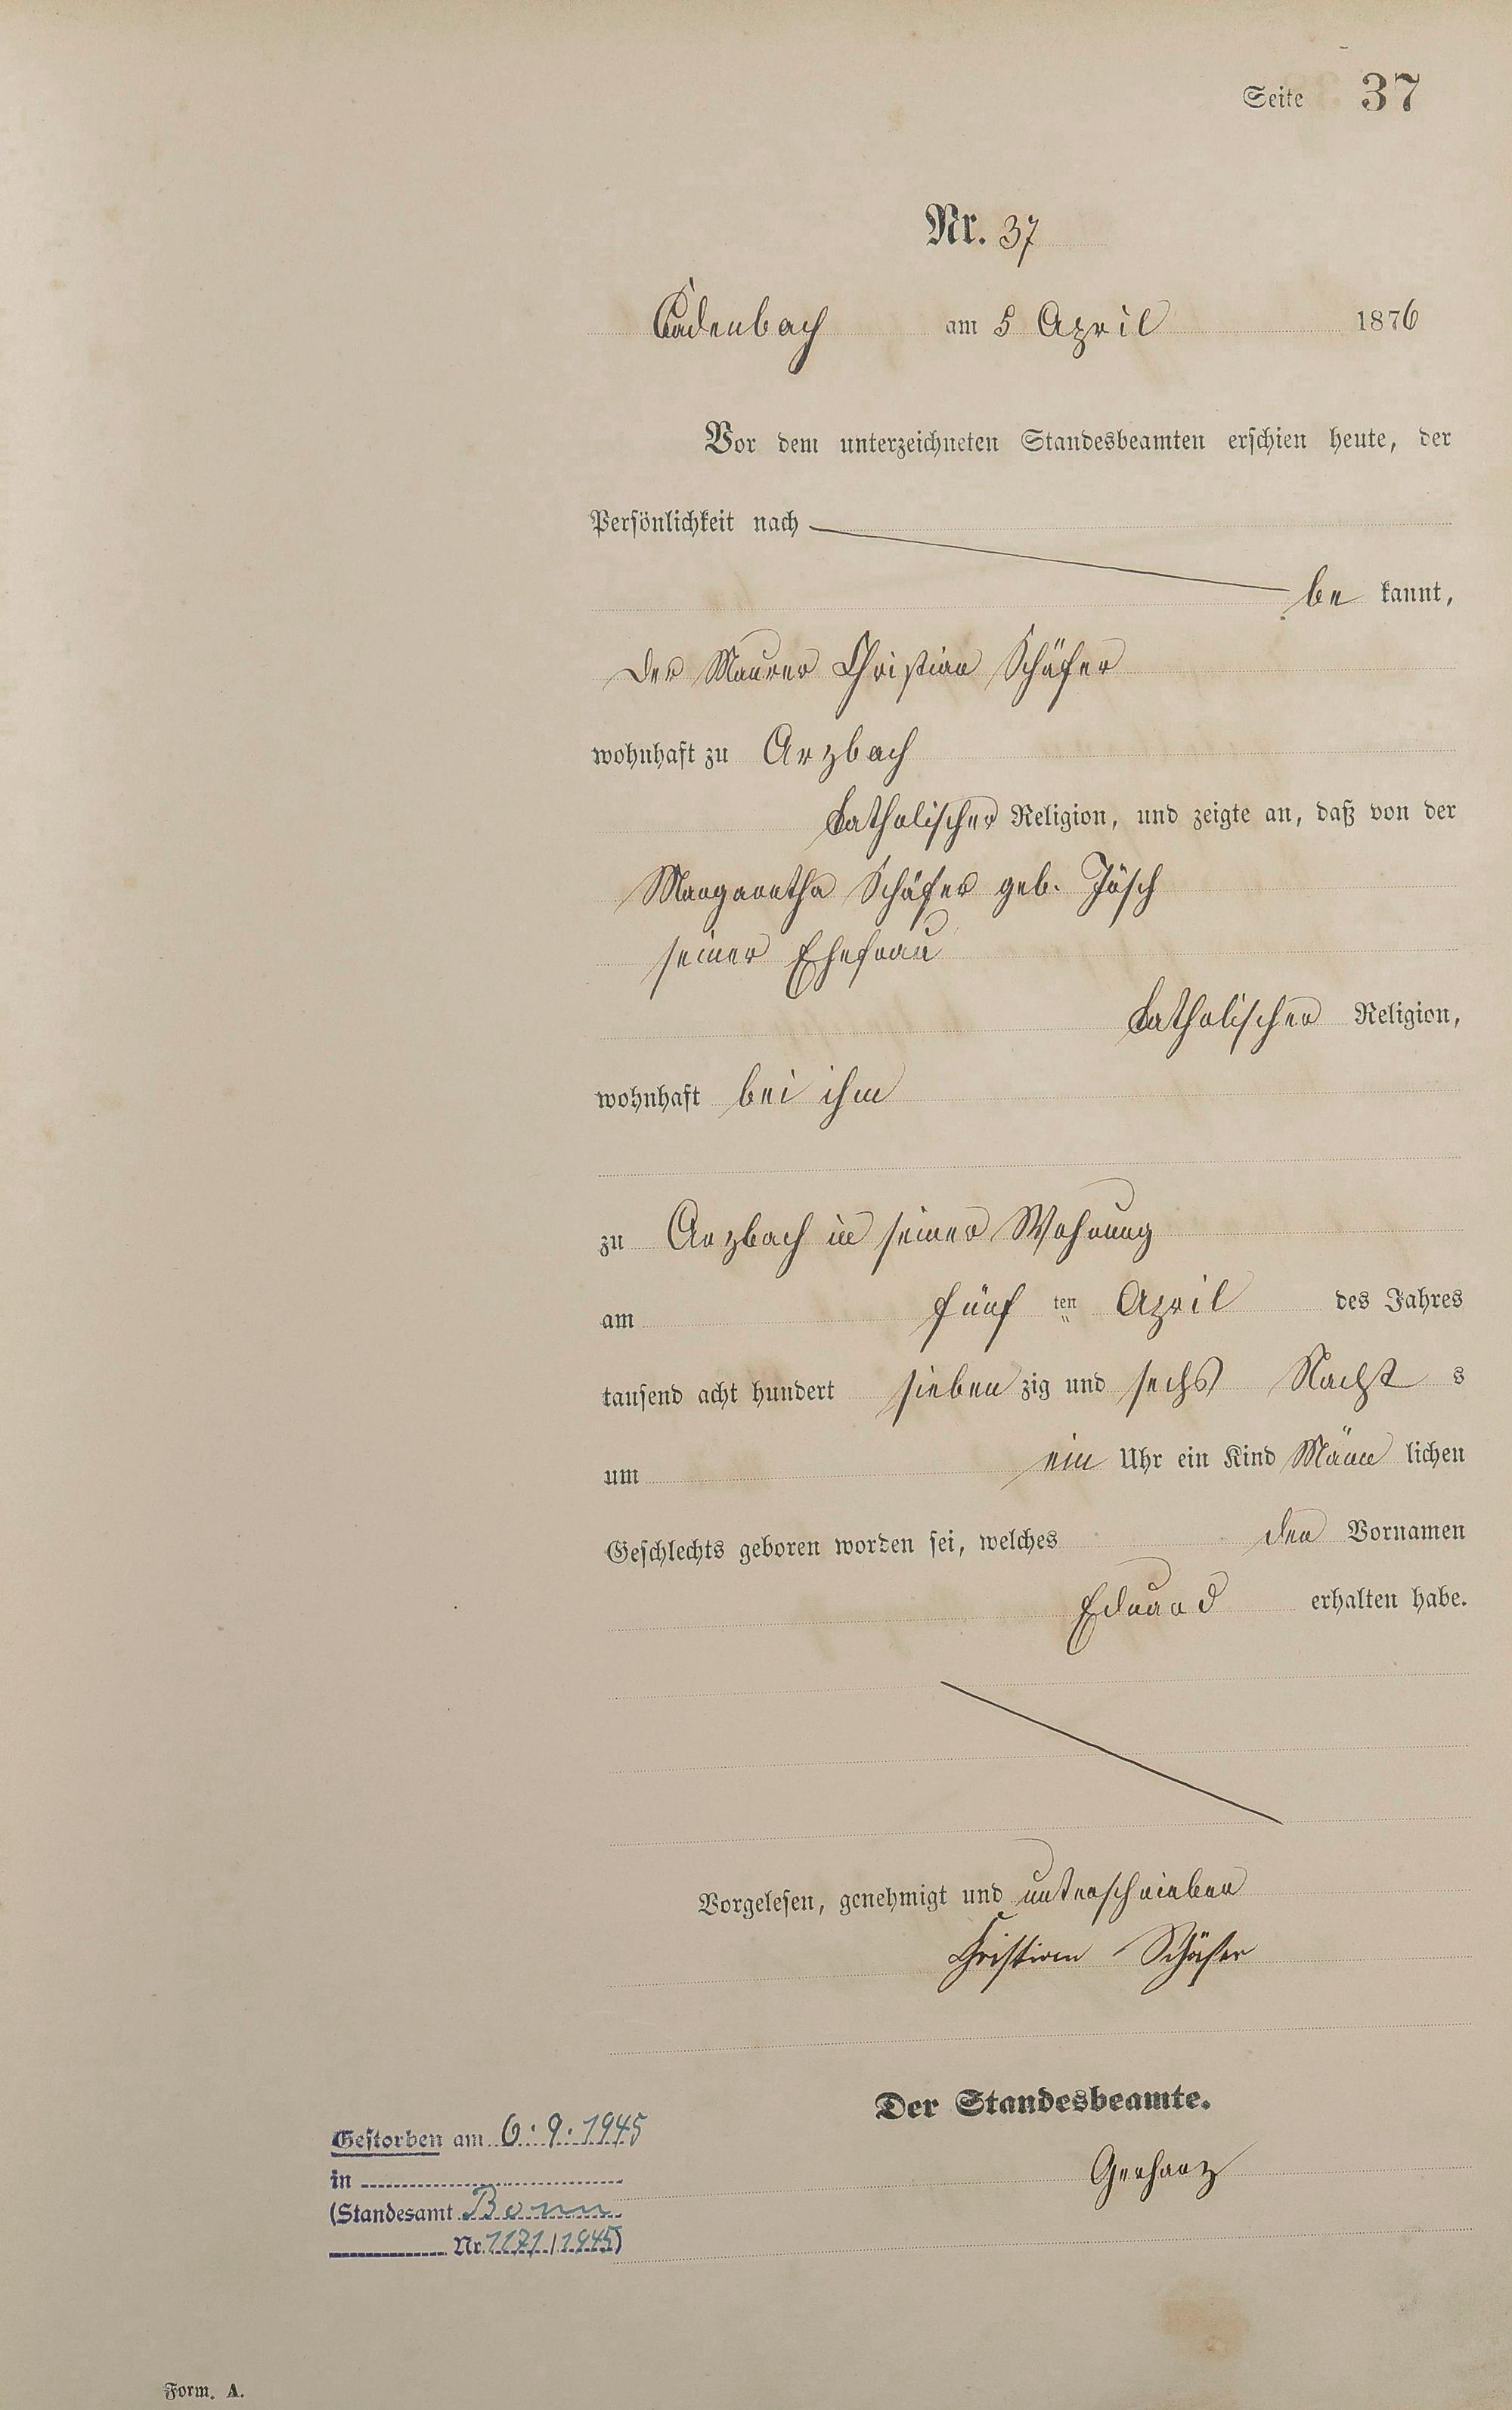 Seite 37
Nr. 37
Cadenbach am 5 April 1876
Vor dem unterzeichneten Standesbeamten erschien heute, der
Persönlichkeit nach
be kannt,
der Maurer Christian Schäfer
wohnhaft zu Arzbach
katholischer Religion, und zeigte an, daß von der
Margaretha Schäfer geb. Jösch
seiner Ehefrau
katholischer Religion,
wohnhaft bei ihm
zu Arzbach in seiner Wohnung
am fünf ten April des Jahres
tausend acht hundert sieben zig und sechs Nachts
um ein Uhr ein Kind Männ lichen
Geschlechts geboren worden sei, welches den Vornamen
Eduard erhalten habe.
Vorgelesen, genehmigt und unterschrieben
Christian Schäfer
Der Standesbeamte.
Gerharz
Gestorben am 6.9.1945
in
(Standesamt Bonn
Nr. 1171/1945)
Form. A.